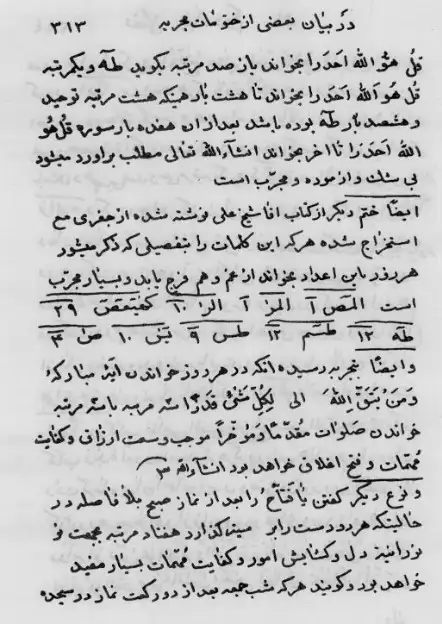 در بیان بعضی از ختومات مجربه ۳۱۳
قل هو الله احد را بخواند باز صد مرتبه بکوید طه و یکمرتبه
قل هو الله احد را بخواند تا هشت بار هیکه هشت مرتبه توحید
و هشتصد بار طه بوده باشد بعد از ان هفده بار سوره قل هو
الله احد را تا اخر بخواند انشآء الله تعالی مطلب براورد میشود
بی شك و ازموده و مجرّب است
ایضا ختم دیکر از کتاب اقا شیخ علی نوشته شده از جفری مع
استخراج شده هر که این کلمات را بتفصیلی که ذکر میشود
هر روز باین اعداد بخواند از غم و هم فرج یابد و بسیار مجرّب
است المص ۱ المر ۱ الر ۱۰ کهیعص ۲۹
طه ۱۲ طسم ۱۲ طس ۹ یس ۱۰ ص ۳
و ایضا بتجربه رسیده انکه در هر روز خواندن ایۀ مبارکۀ
وَمَنْ يَتَّقِ اللهَ الی لِكُلِّ شَيْءٍ قَدْرًا سه مرتبه با سه مرتبه
خواندن صلوات مقدّمًا و مؤخرًا موجب وسعت ارزاق و کفایت
مهمّات و فتح اغلاق خواهد بود انشاءالله
و نوع دیکر کفتن یا فتّاحُ را بعد از نماز صبح بلا فاصله در
حالتیکه هر دو دست را بر سینه گذارد هفتاد مرتبه بجهت
نورانیة دل و کشایش امور و کفایت مهمّات بسیار مفید
خواهد بود و کویند هر که شب جمعه بعد از دو رکعت نماز در سجده